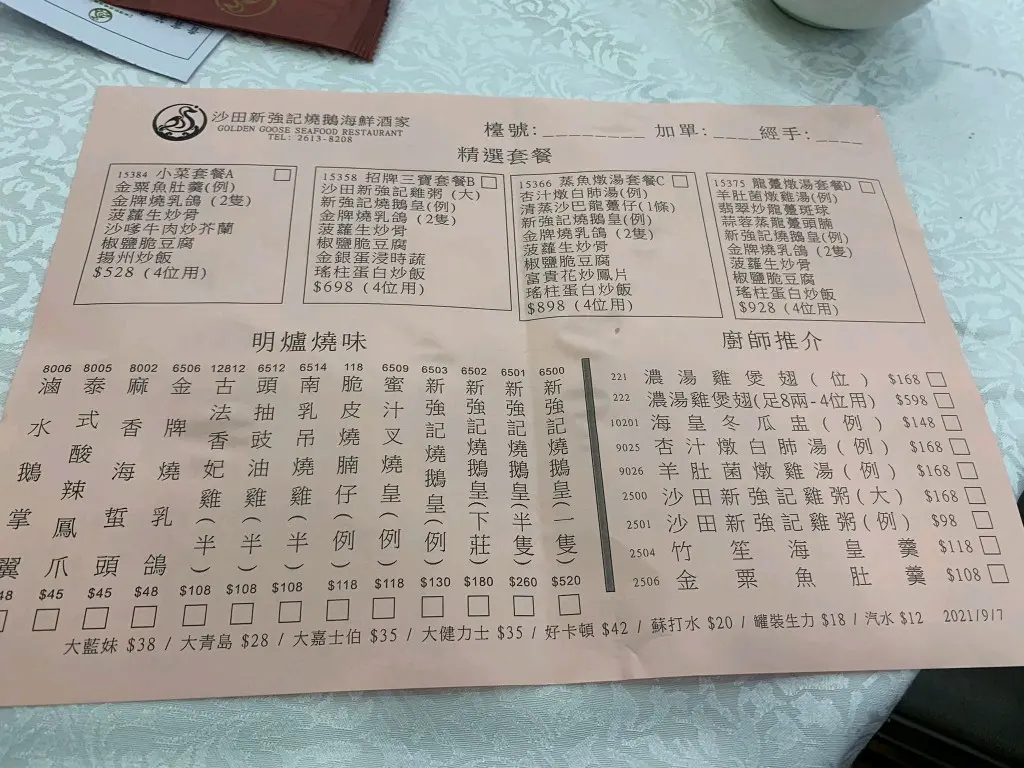 沙田新強記燒鵝海鮮酒家
GOLDEN GOOSE SEAFOOD RESTAURANT
TEL: 2613-8208
檯號:________ 加單:____經手:____
精選套餐
15384 小菜套餐A
金粟魚肚羹(例)
金牌燒乳鴿 (2隻)
菠蘿生炒骨
沙嗲牛肉炒芥蘭
椒鹽脆豆腐
揚州炒飯
$528 (4位用)
15358 招牌三寶套餐B
沙田新強記雞粥 (大)
新強記燒鵝皇(例)
金牌燒乳鴿 (2隻)
菠蘿生炒骨
椒鹽脆豆腐
金銀蛋浸時蔬
瑤柱蛋白炒飯
$698 (4位用)
15366 蒸魚燉湯套餐C
杏汁燉白肺湯(例)
清蒸沙巴龍躉仔(1條)
新強記燒鵝皇(例)
金牌燒乳鴿 (2隻)
菠蘿生炒骨
椒鹽脆豆腐
富貴花炒鳳片
瑤柱蛋白炒飯
$898 (4位用)
15375 龍躉燉湯套餐D
羊肚菌燉雞湯(例)
翡翠炒龍躉斑球
蒜蓉蒸龍躉頭腩
新強記燒鵝皇(例)
金牌燒乳鴿 (2隻)
菠蘿生炒骨
椒鹽脆豆腐
瑤柱蛋白炒飯
$928 (4位用)
明爐燒味
8006 滷水鵝掌翼 48
8005 泰式酸辣鳳爪 $45
8002 麻香海蜇頭 $45
6506 金牌燒乳鴿 $48
12812 古法香妃雞(半) $108
6512 頭抽豉油雞(半) $108
6514 南乳吊燒雞(半) $108
118 脆皮燒腩仔(例) $118
6509 蜜汁叉燒皇(例) $118
6503 新強記燒鵝皇(例) $130
6502 新強記燒鵝皇(下莊) $180
6501 新強記燒鵝皇(半隻) $260
6500 新強記燒鵝皇(一隻) $520
廚師推介
221 濃湯雞煲翅(位) $168
222 濃湯雞煲翅(足8兩-4位用) $598
10201 海皇冬瓜盅(例) $148
9025 杏汁燉白肺湯(例) $168
9026 羊肚菌燉雞湯(例) $168
2500 沙田新強記雞粥(大) $168
2501 沙田新強記雞粥(例) $98
2504 竹笙海皇羹 $118
2506 金粟魚肚羹 $108
大藍妹 $38 / 大青島 $28 / 大嘉士伯 $35 / 大健力士 $35 / 好卡頓 $42 / 蘇打水 $20 / 罐裝生力 $18 / 汽水 $12 2021/9/7